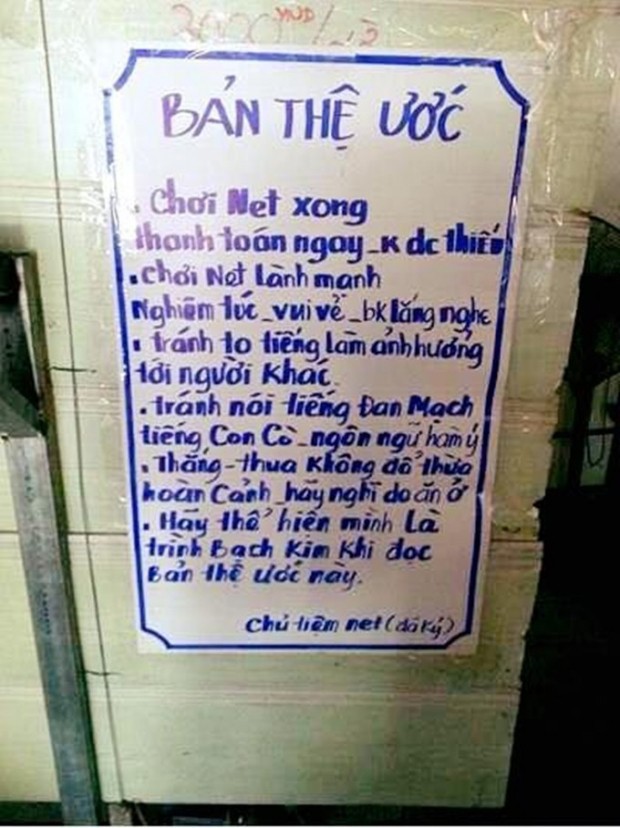 3000 VND /
BẢN THỆ ƯỚC
. Chơi Net xong
thanh toán ngay_K dc thiếu
. chơi Net Lành mạnh
Nghiêm túc_vui vẻ_bk lắng nghe
. tránh to tiếng làm ảnh hưởng
tới người Khác.
. tránh nói tiếng Đan Mạch
tiếng Con Cò_ngôn ngữ hàm ý
. Thắng-thua Không đổ thừa
hoàn Cảnh_hãy nghĩ do ăn ở
. Hãy thể hiện mình Là
trình Bạch Kim Khi đọc
Bản thệ ước này.
Chủ tiệm net (đã ký)